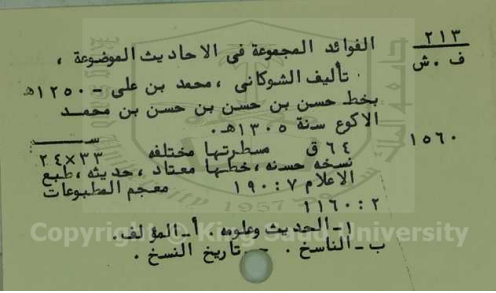 ٢١٣ الفوائد المجموعة فى الاحاديث الموضوعة ،
ف ٠ ش تأليف الشوكانى ، محمد بن على - ١٢٥٠هـ
بخط حسن بن حسن بن حسن بن محمد
الاكوع سنة ١٣٠٥هـ.
١٥٦٠ ٦٤ ق مسطرتها مختلفه ٣٣×٢٤ ســـم
نسخه حسنه ، خطها معتاد ، حديثه ، طبع
الاعلام ٧ : ١٩٠ معجم المطبوعات
٢ : ١١٦٠
١- الحديث وعلومه . أ- المؤلف.
ب - الناسخ . - تاريخ النسخ .
Copyright © King Saud University
1957